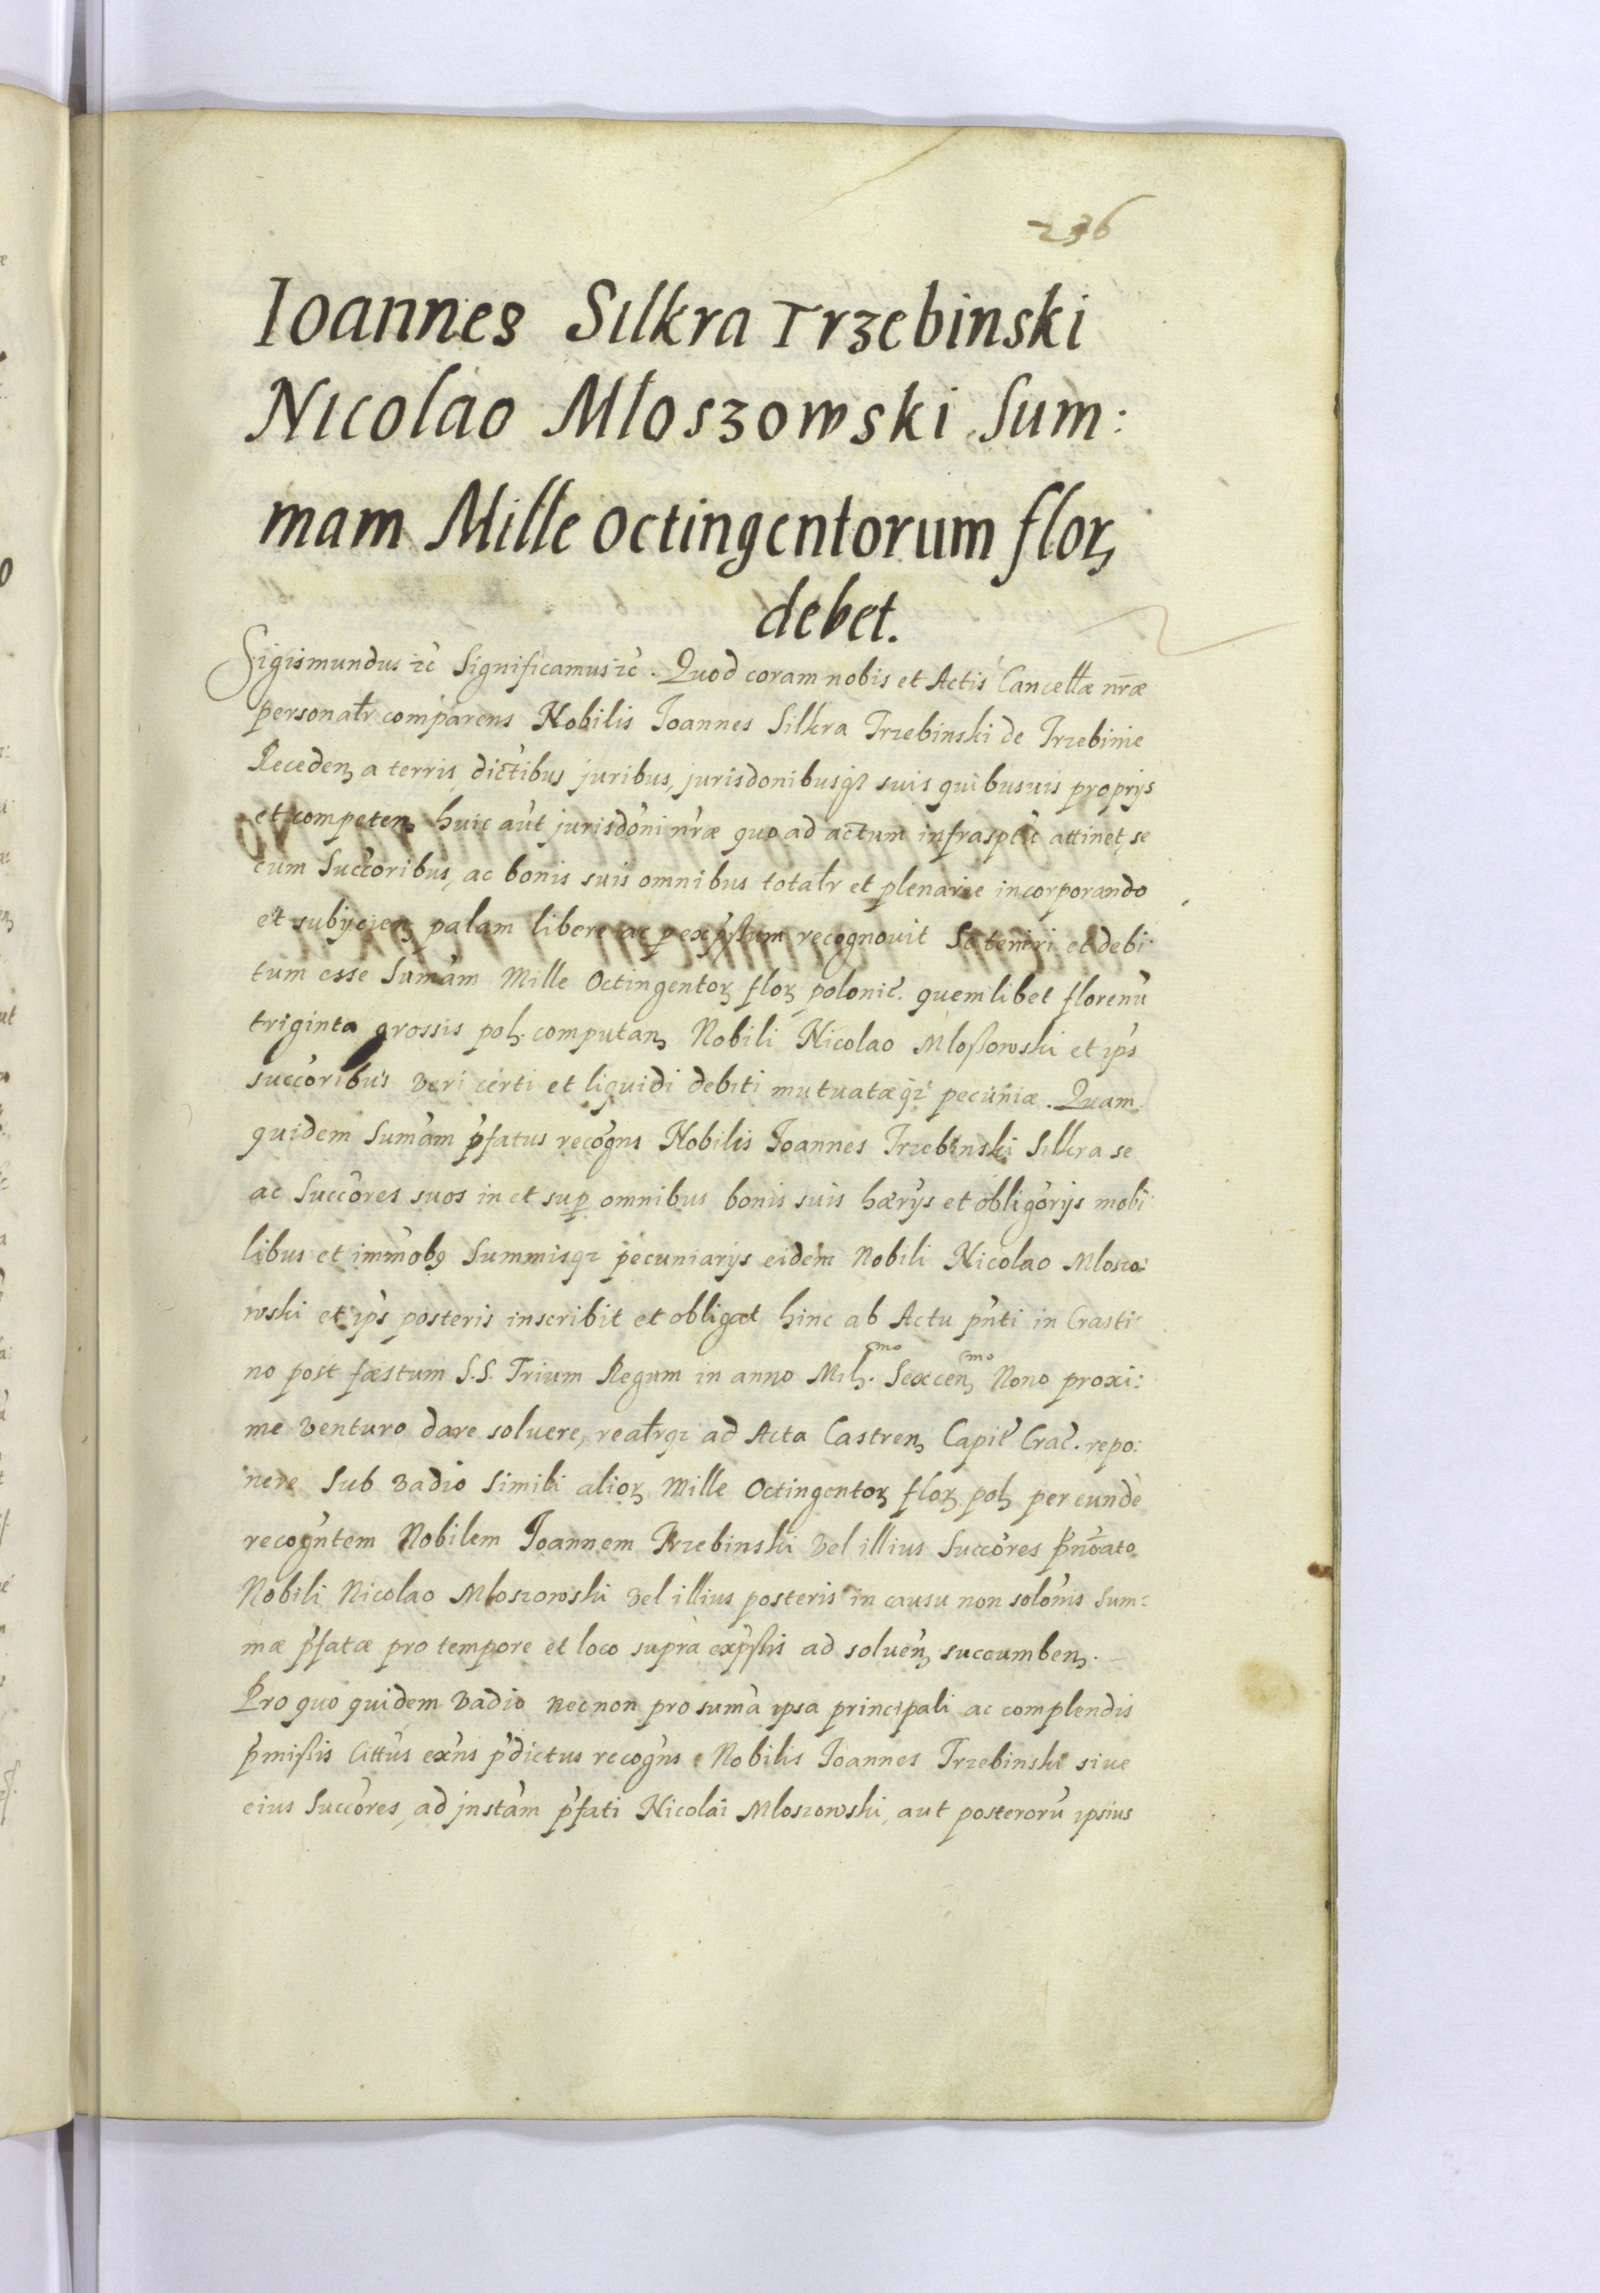 236
Ioannes Silkra Trzebinski
Nicolao Mloszowski Sum:
mam Mille octingentorum florꝫ
debet.
Sigismundus ꝛc̃ Significamus ꝛc̃. Quod coram nobis et Actis Cancellæ nr̃æ
personalr̃ comparens Nobilis Joannes Silkra Trzebinski de Trzebinie
Recedenꝫ a terris dictibus juribus, jurisdonibusqꝫ suis quibusuis proprijs
et competenꝫ huic aut̃ jurisdõni nr̃æ quo ad actum infrasptũ attinet, se
cum Succõribus, ac bonis suis omnibus totalr̃ et plenarie incorporando
et subijcienꝫ palam libere ac p expr̃ssum recognouit Se teneri et debi:
tum esse Sum̃am Mille Octingentorꝫ florꝫ polonic̃. quemlibet florenũ
triginta grossis polꝫ. computanꝫ Nobili Nicolao Mloßowski et ip̃s
succõribus veri certi et liquidi debiti mutuatæqꝫ pecuniæ. Quam
quidem Sum̃am p̃fatus recogñs Nobilis Joannes Trzebinski Silkra se
ac Succõres suos in et sup̱ omnibus bonis suis hær̃ijs et obligõrijs mobi
libus et immobꝫ Summisqꝫ pecuniarijs eidem Nobili Nicolao Mloszo:
wski et ip̃s posteris inscribit et obligat hinc ab Actu pñti in Crasti:
no post fæstum S.S. Trium Regum in anno Milꝫ.ᵐᵒ Sexcenꝫᵐᵒ Nono proxi:
me venturo dare soluere, realr̃qꝫ ad Acta Castrenꝫ Capit̃ Crac̃. repo:
nere Sub vadio Simili aliorꝫ Mille Octingentorꝫ florꝫ polꝫ per eundẽ
recogñtem Nobilem Joannem Trzebinski vel illius Succõres p̃nõato
Nobili Nicolao Mloszowski vel illius posteris in causu non solõnis Sum:
mæ p̃fatæ pro tempore et loco supra exp̃ssis ad soluenꝫ succumbenꝫ.
Pro quo quidem vadio necnon pro sum̃a ipsa principali ac complendis
p̃missis Cittũs exñs p̃dictus recogñs Nobilis Joannes Trzebinski siue
eius Succõres, ad jnstãm p̃fati Nicolai Mloszowski, aut posterorũ ipsius